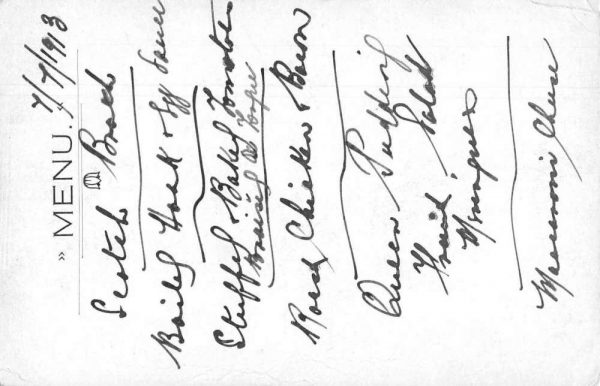 7/7/1913
» MENU. «
Scotch Broth
Boiled & Egg Sauce
Stuffed & Baked Tomatoes
Braised Ox Tongue
Roast Chicken & Bacon
Queen Pudding
Fruit Salad
Meringues
Macaroni Cheese